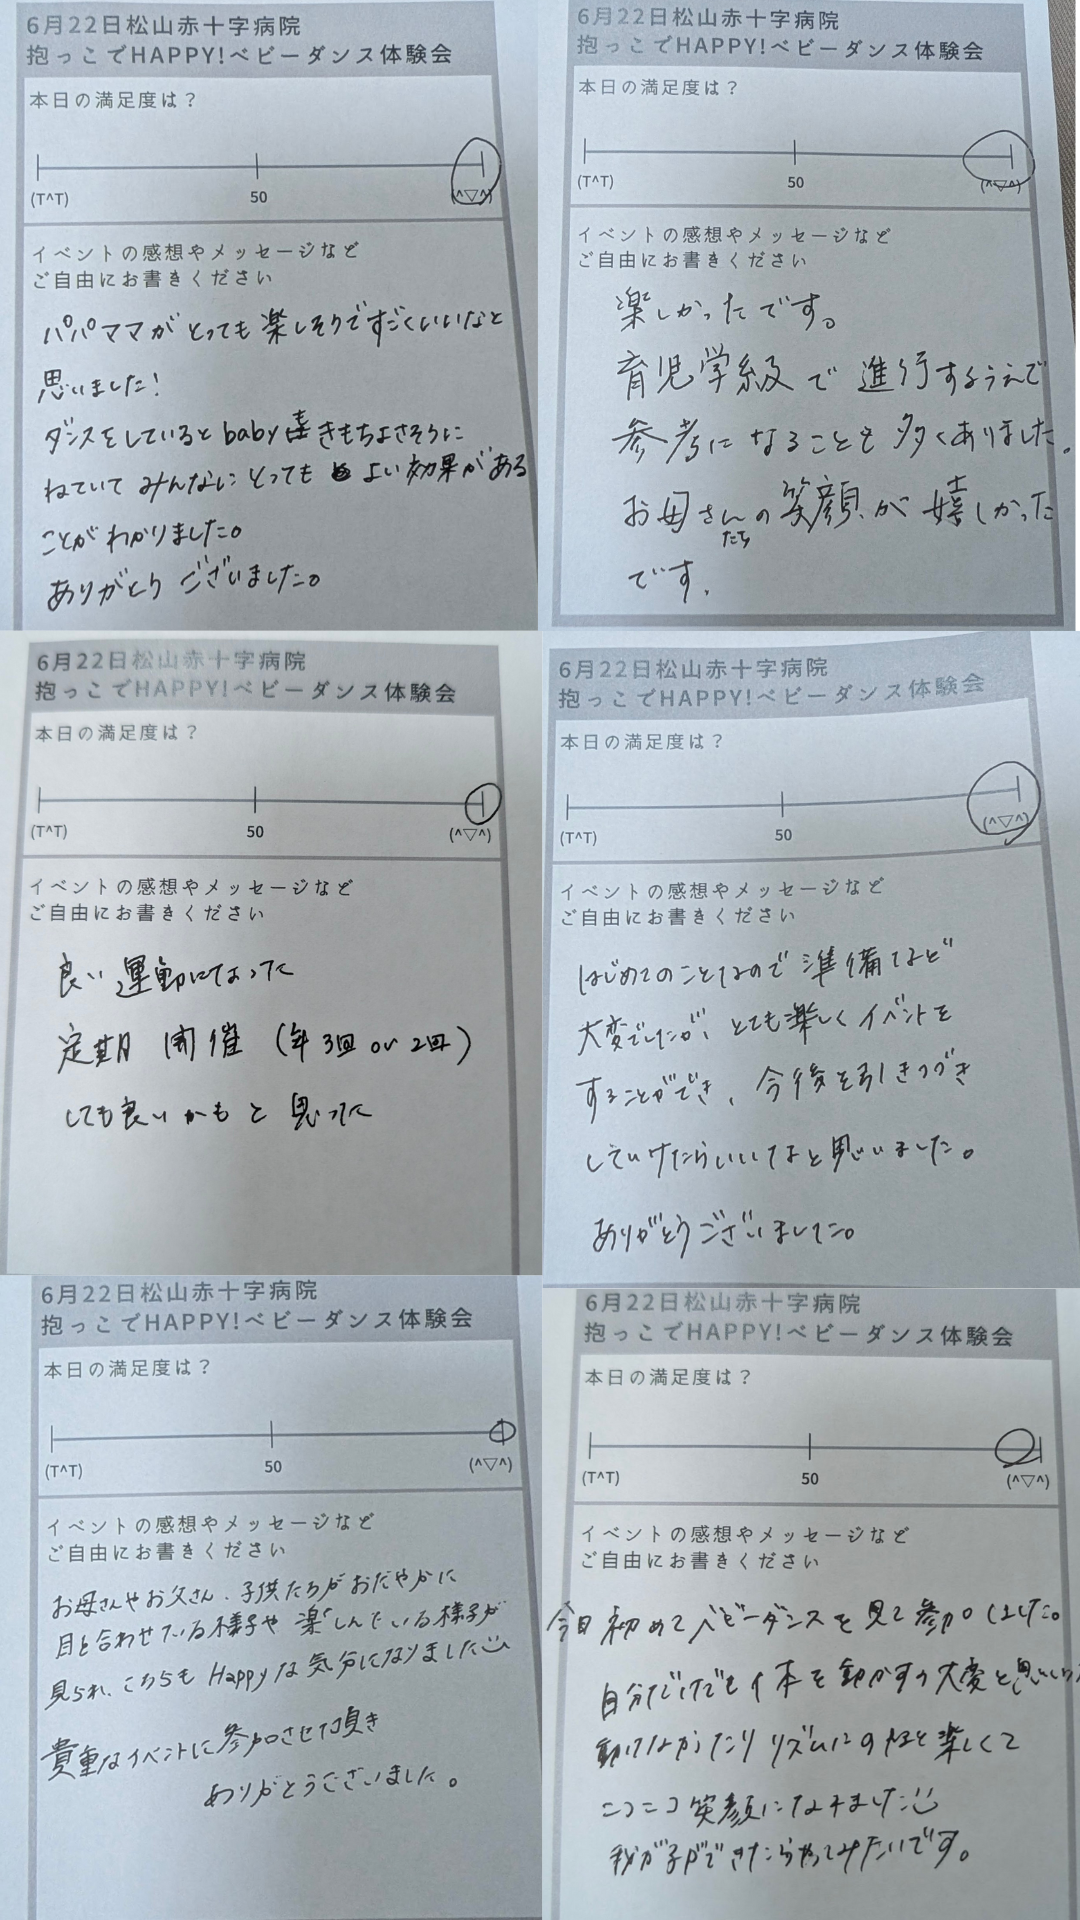 6月22日松山赤十字病院
抱っこでHAPPY!ベビーダンス体験会
本日の満足度は？
(T^T) 50 (^▽^)
イベントの感想やメッセージなど
ご自由にお書きください
パパママがとっても楽しそうですごくいいなと
思いました!
ダンスをしているとbabyもきもちよさそうに
ねていてみんなにとってもよい効果がある
ことがわかりました。
ありがとうございました。
6月22日松山赤十字病院
抱っこでHAPPY!ベビーダンス体験会
本日の満足度は？
(T^T) 50 (^▽^)
イベントの感想やメッセージなど
ご自由にお書きください
楽しかったです。
育児学級で進行するうえで
参考になることも多くありました。
お母さんたちの笑顔が嬉しかった
です。
6月22日松山赤十字病院
抱っこでHAPPY!ベビーダンス体験会
本日の満足度は？
(T^T) 50 (^▽^)
イベントの感想やメッセージなど
ご自由にお書きください
良い運動になった
定期開催(年3回or2回)
しても良いかもと思った
6月22日松山赤十字病院
抱っこでHAPPY!ベビーダンス体験会
本日の満足度は？
(T^T) 50 (^▽^)
イベントの感想やメッセージなど
ご自由にお書きください
はじめてのことなので準備など
大変でしたが、とても楽しくイベントを
することができ、今後も引きつづき
していけたらいいなと思いました。
ありがとうございました。
6月22日松山赤十字病院
抱っこでHAPPY!ベビーダンス体験会
本日の満足度は？
(T^T) 50 (^▽^)
イベントの感想やメッセージなど
ご自由にお書きください
お母さんやお父さん、子供たちがおだやかに
目を合わせている様子や楽しんでいる様子が
見られ、こちらもHappyな気分になりました
貴重なイベントに参加させて頂き
ありがとうございました。
6月22日松山赤十字病院
抱っこでHAPPY!ベビーダンス体験会
本日の満足度は？
(T^T) 50 (^▽^)
イベントの感想やメッセージなど
ご自由にお書きください
今日初めてベビーダンスを見て参加しました。
自分だけでも体を動かすの大変と思い
動けなかったりリズムにのると楽しくて
ニコニコ笑顔になれました
我が子ができたらやってみたいです。